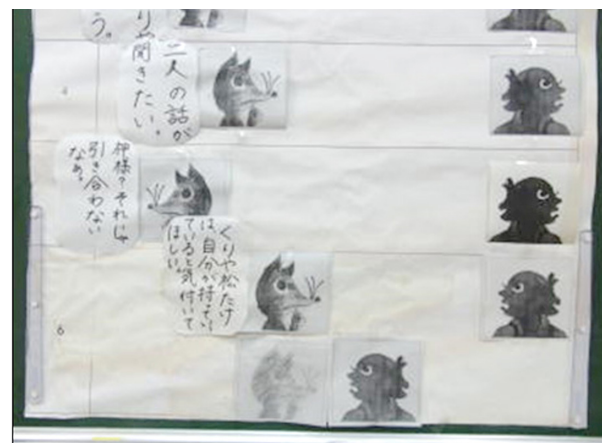 う。
りや
4
二人の話が
聞きたい。
神様?それじゃ
引き合わない
なあ。
くりや松たけ
は、自分が持っ
ていると気付いて
ほしい。
6